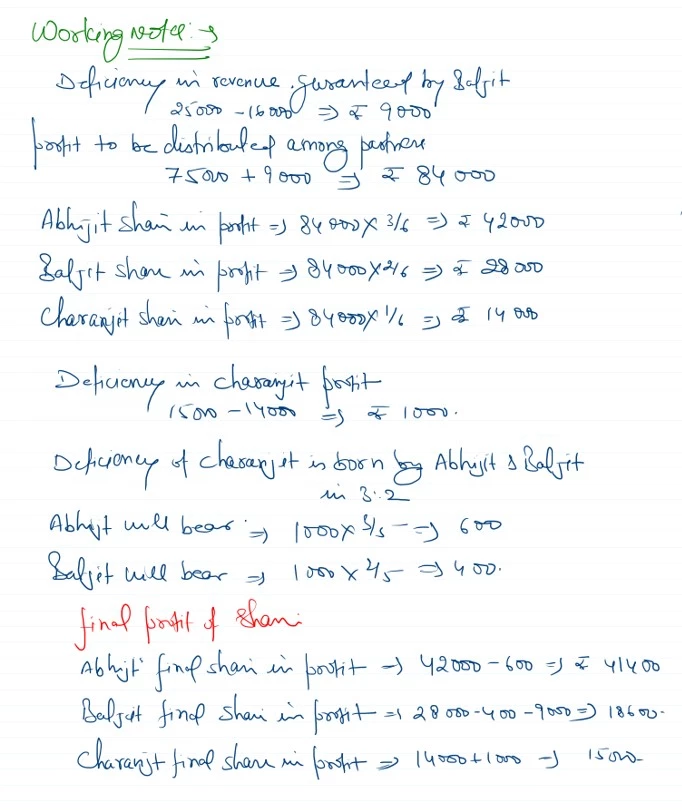 Working note :→
Deficiency in revenue guranteed by Baljit
25000 - 16000 ⇒ ₹ 9000
profit to be distributed among partners
75000 + 9000 ⇒ ₹ 84000
Abhijit share in profit ⇒ 84000 × 3/6 ⇒ ₹ 42000
Baljit share in profit ⇒ 84000 × 2/6 ⇒ ₹ 28000
Charanjit share in profit ⇒ 84000 × 1/6 ⇒ ₹ 14000
Deficiency in charanjit profit
15000 - 14000 ⇒ ₹ 1000.
Deficiency of charanjit is born by Abhijit & Baljit
in 3:2
Abhijit will bear ⇒ 1000 × 3/5 ⇒ 600
Baljit will bear ⇒ 1000 × 2/5 ⇒ 400.
final profit of share
Abhijit final share in profit → 42000 - 600 ⇒ ₹ 41400
Baljit final share in profit ⇒ 28000 - 400 - 9000 ⇒ 18600.
Charanjit final share in profit ⇒ 14000 + 1000 ⇒ 15000